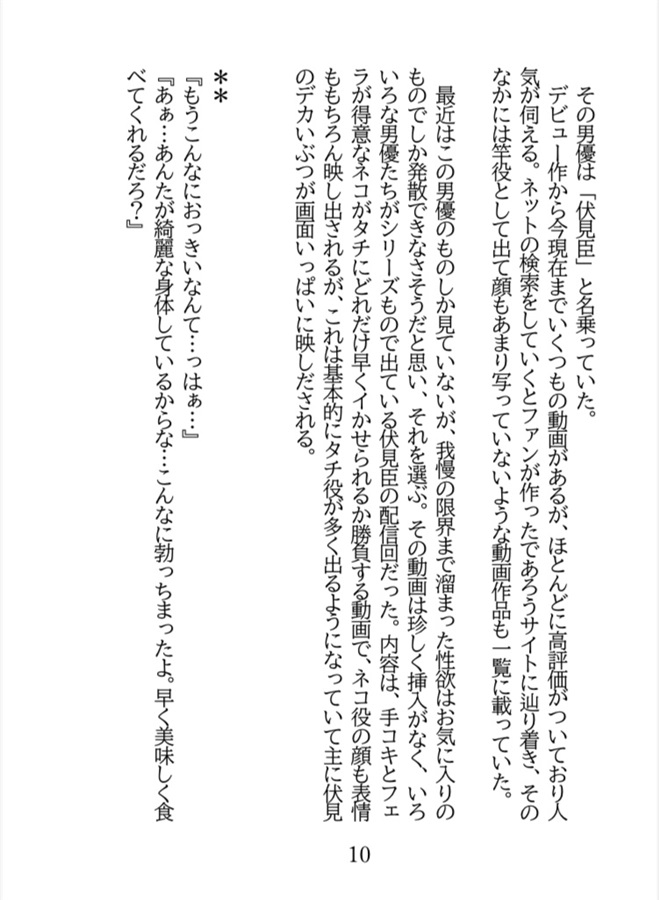 その男優は「伏見臣」と名乗っていた。
デビュー作から今現在までいくつもの動画があるが、ほとんどに高評価がついており人
気が伺える。ネットの検索をしていくとファンが作ったであろうサイトに辿り着き、その
なかには竿役として出て顔もあまり写っていないような動画作品も一覧に載っていた。
最近はこの男優のものしか見ていないが、我慢の限界まで溜まった性欲はお気に入りの
ものでしか発散できなさそうだと思い、それを選ぶ。その動画は珍しく挿入がなく、いろ
いろな男優たちがシリーズもので出ている伏見臣の配信回だった。内容は、手コキとフェ
ラが得意なネコがタチにどれだけ早くイかせられるか勝負する動画で、ネコ役の顔も表情
ももちろん映し出されるが、これは基本的にタチ役が多く出るようになっていて主に伏見
のデカいぶつが画面いっぱいに映しだされる。
**
『もうこんなにおっきいなんて…っはぁ…』
『あぁ…あんたが綺麗な身体しているからな…こんなに勃っちまったよ。早く美味しく食
べてくれるだろ?』
10